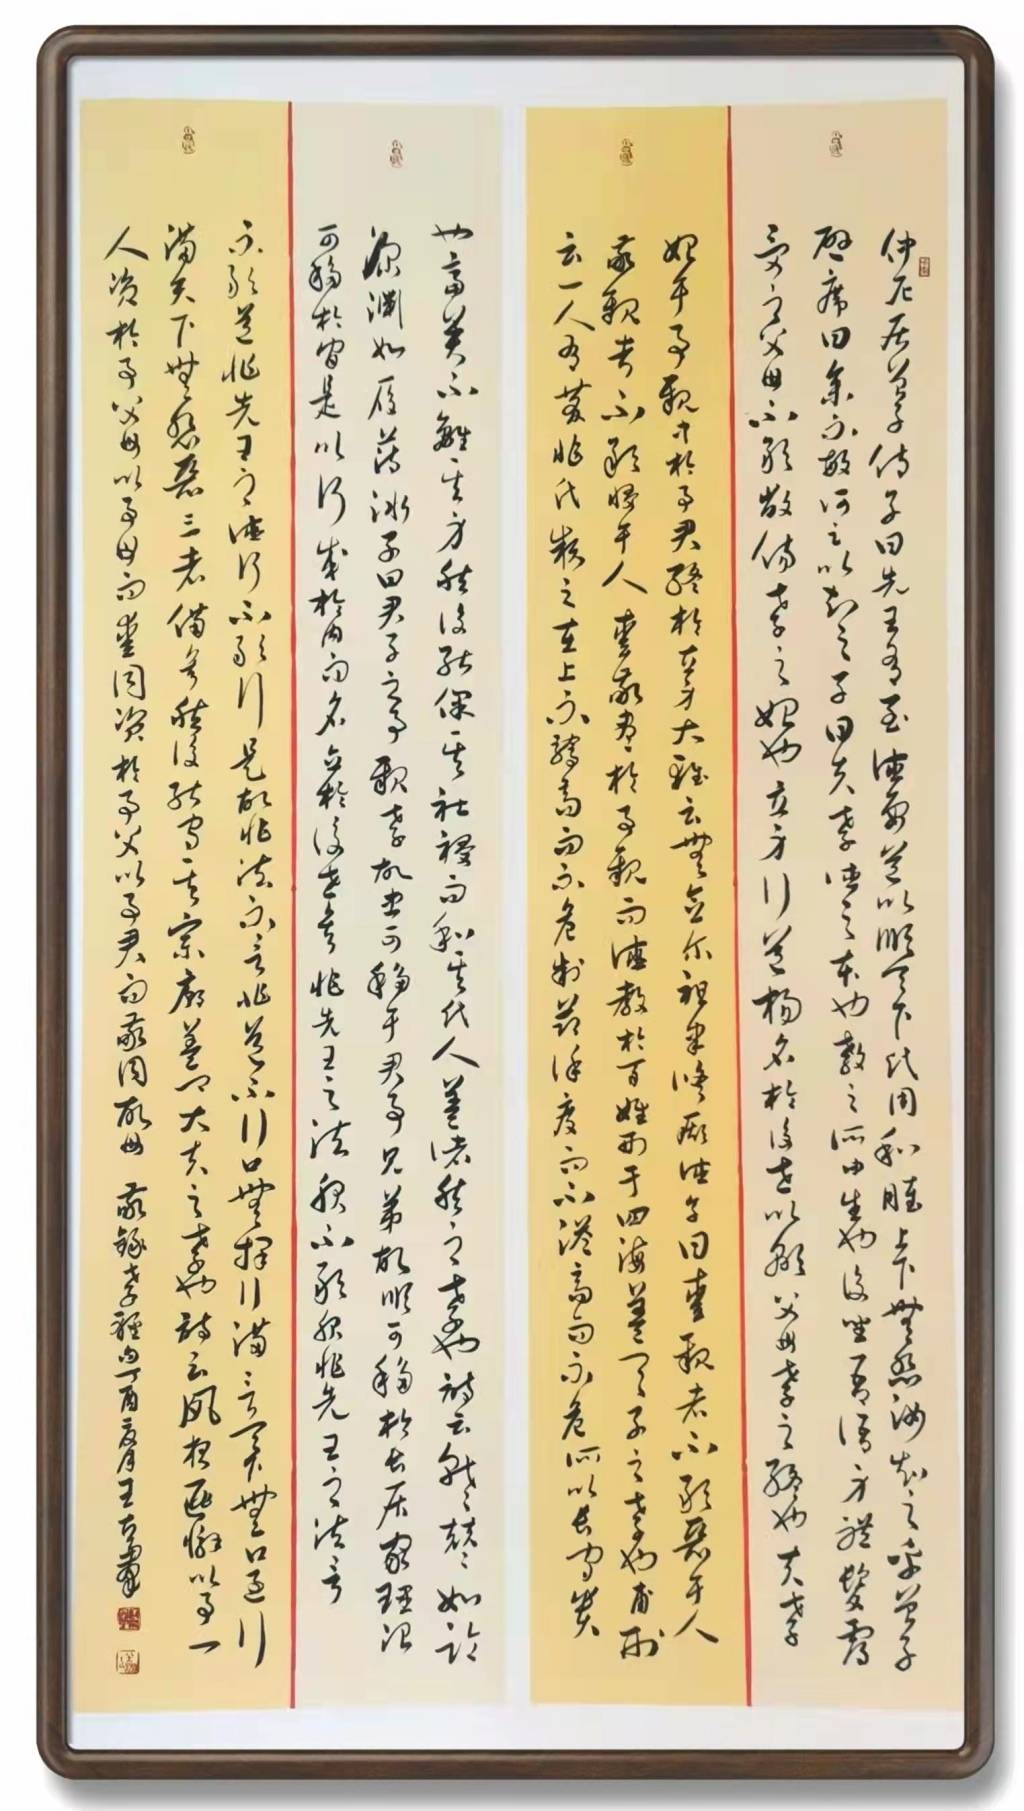 仲尼居曾子侍子曰先王有至德要道以順天下代用和睦上下無怨汝知之乎曾子
避席曰參不敏何足以知之子曰夫孝德之本也教之所由生也復坐吾語身體髮膚
受之父母不敢毀傷孝之始也立身行道揚名於後世以顯父母孝之終也夫孝
始于事親中於事君終於立身大雅云無念爾祖聿修厥德子曰愛親者不敢惡于人
敬親者不敢慢于人愛敬盡於事親而德教於百姓刑于四海蓋天子之孝也甫刑
云一人有慶兆代賴之在上不驕高而不危制節謹度而不溢高而不危所以長守貴
也富貴不離其身然後能保其社稷而和其代人蓋諸侯之孝也詩云戰戰兢兢如臨
深淵如履薄冰子曰君子之事親孝故忠可移于君事兄弟故順可移於長居家理治
可移於官是以行成於內而名立於後世矣非先王之法服不敢服非先王之法言
不敢道非先王之德行不敢行是故非法不言非道不行口無擇行滿言天無口過行
滿天下無怨惡三者備矣然後能守其宗廟蓋卿大夫之孝也詩云夙夜匪懈以事一
人資於事父母以事母而愛同資於事父以事君而敬同故母 敬錄孝經句丁酉月王